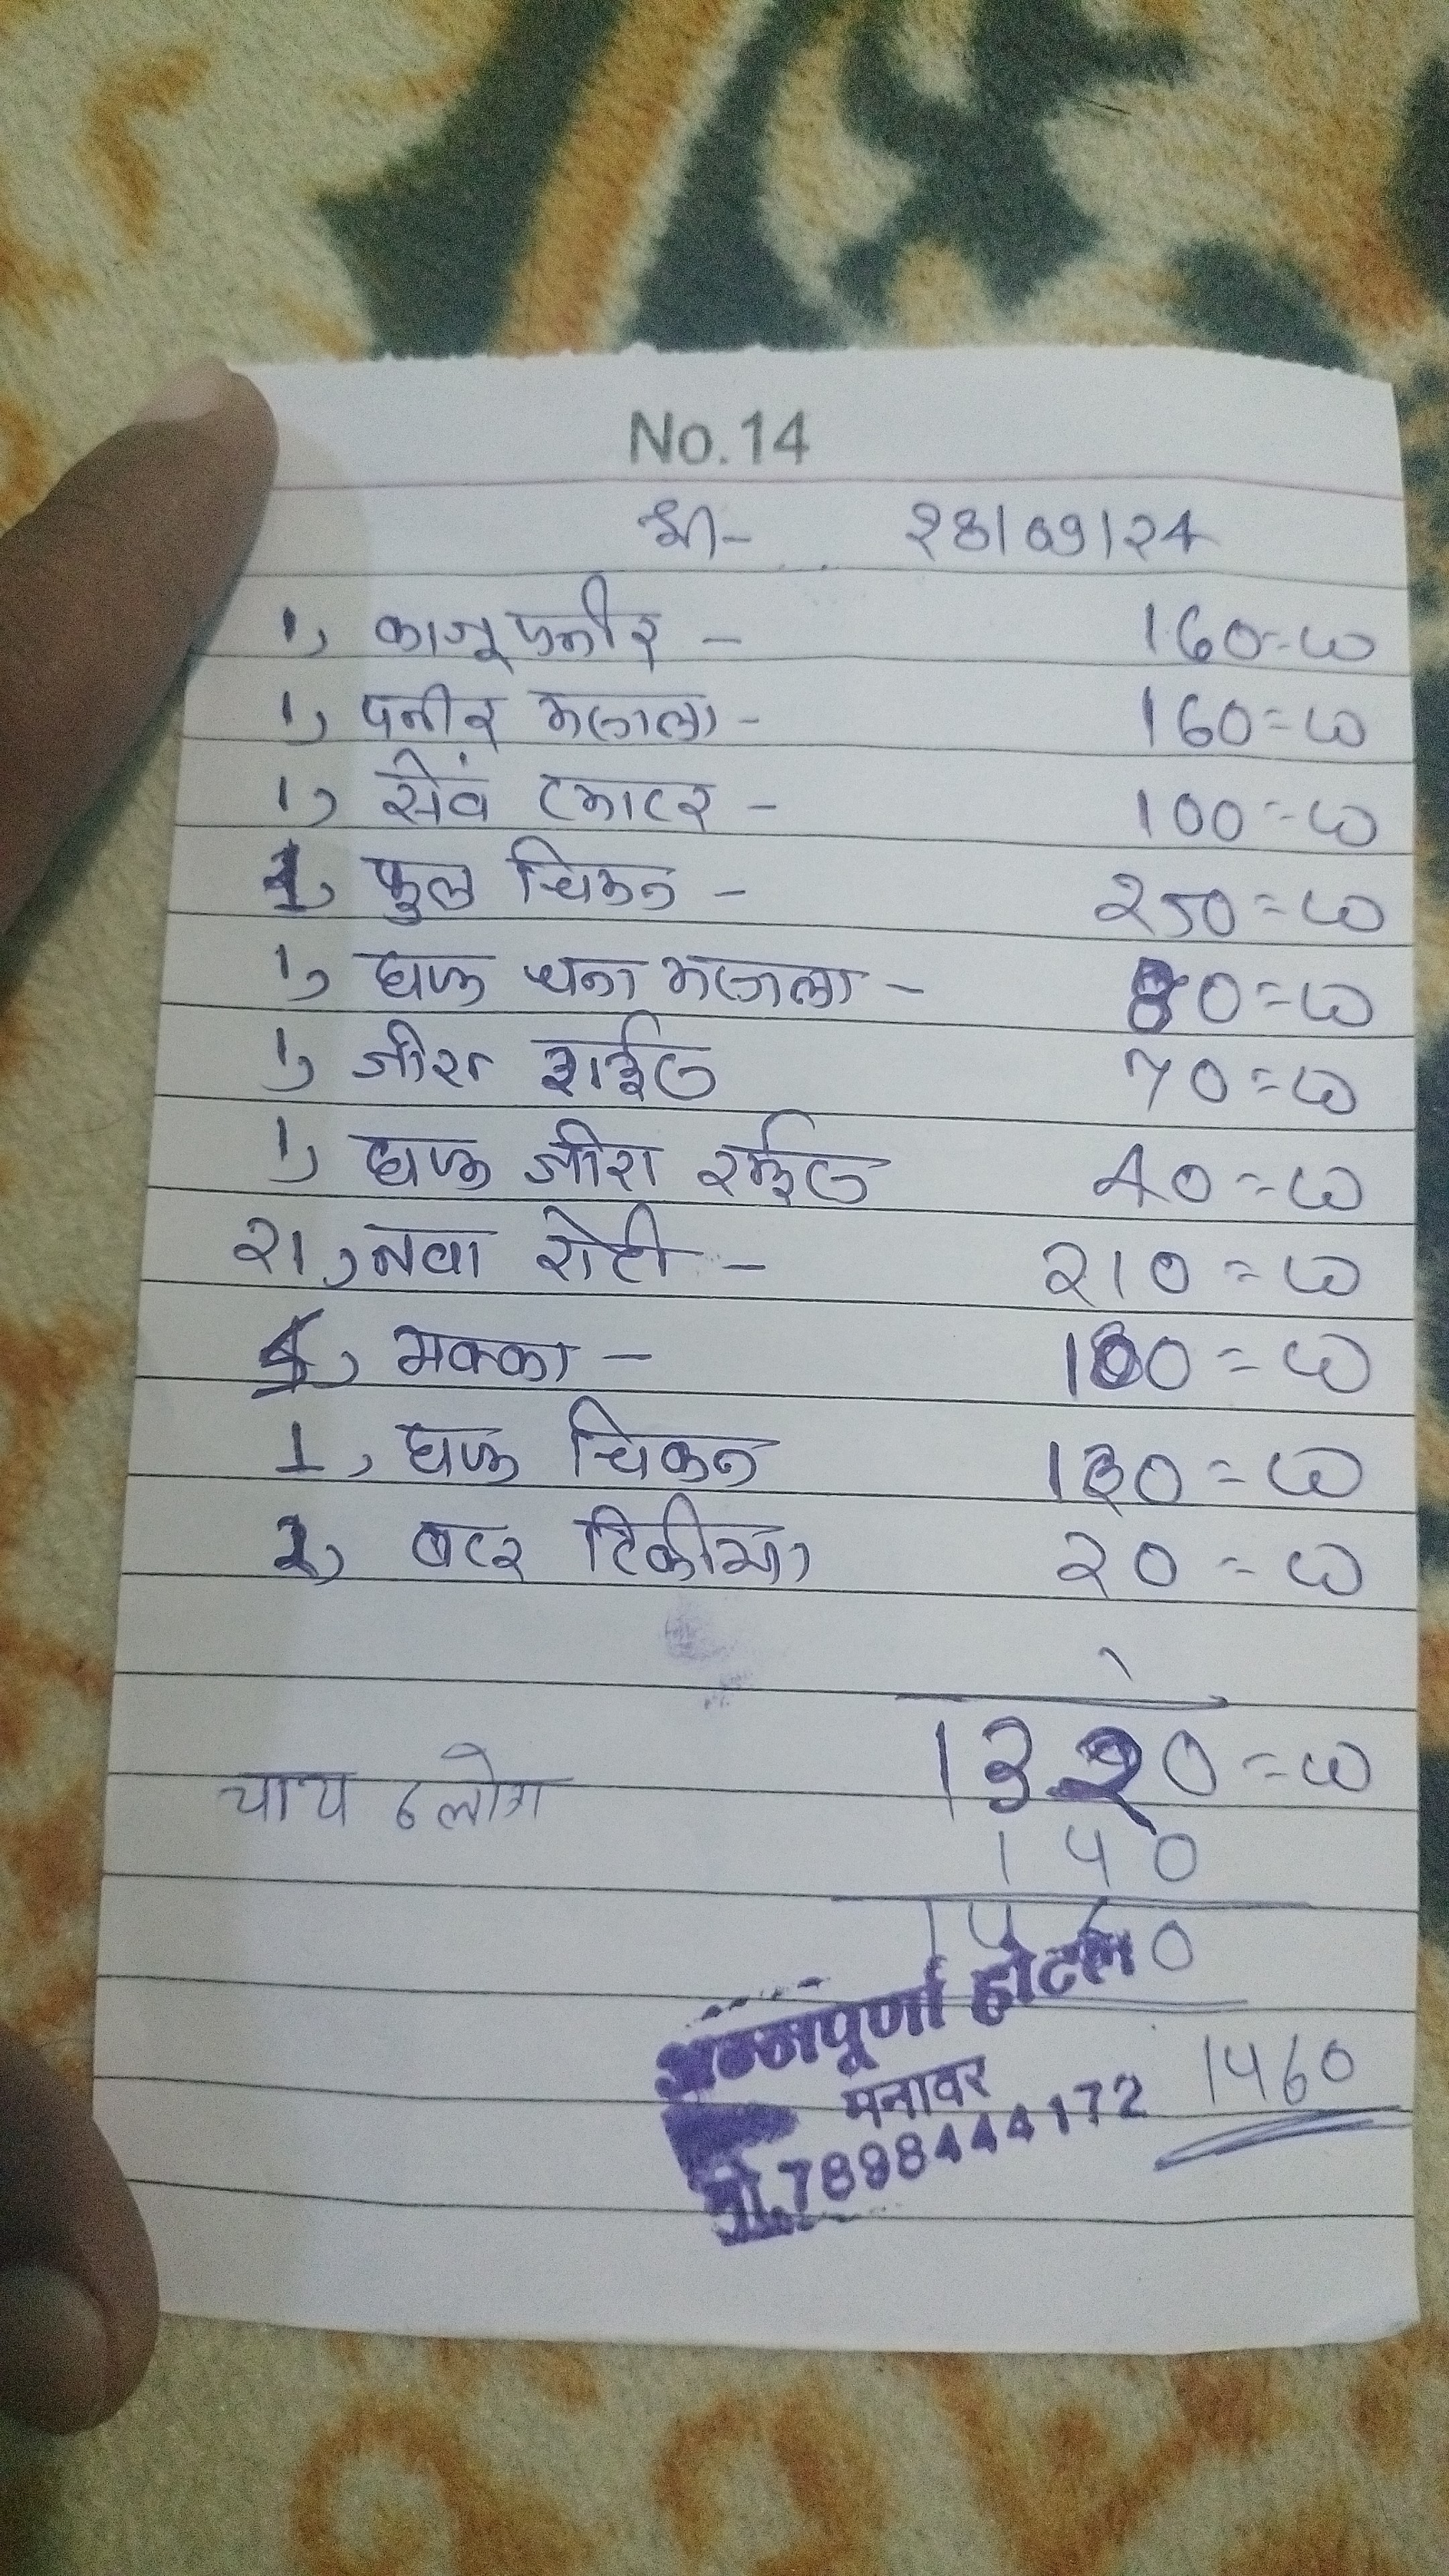 No.14
श्री- 28/09/24
1, काजू पनीर - 160=00
1, पनीर मसाला - 160=00
1, सेवं टमाटर - 100=00
1, फुल चिकन - 250=00
1, हाफ चना मसाला - 80=00
1, जीरा राईस 70=00
1, हाफ जीरा राईस 40=00
21, तवा रोटी - 210=00
मक्का - 100=00
1, हाफ चिकन 130=00
2, बटर टिकीया 20=00
1320=00
चाय लोग
140
1460
अन्नपूर्णा होटल
मनावर
मो. 7898444172
1460